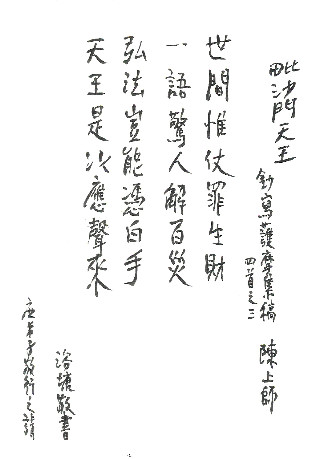 毗沙門天王
鈔寫護摩集稿
四首之三
陳上師
世間惟仗罪生財
一語驚人解百災
弘法豈能憑白手
天王是以應聲來
浴塘敬書
應弟子敬行之請